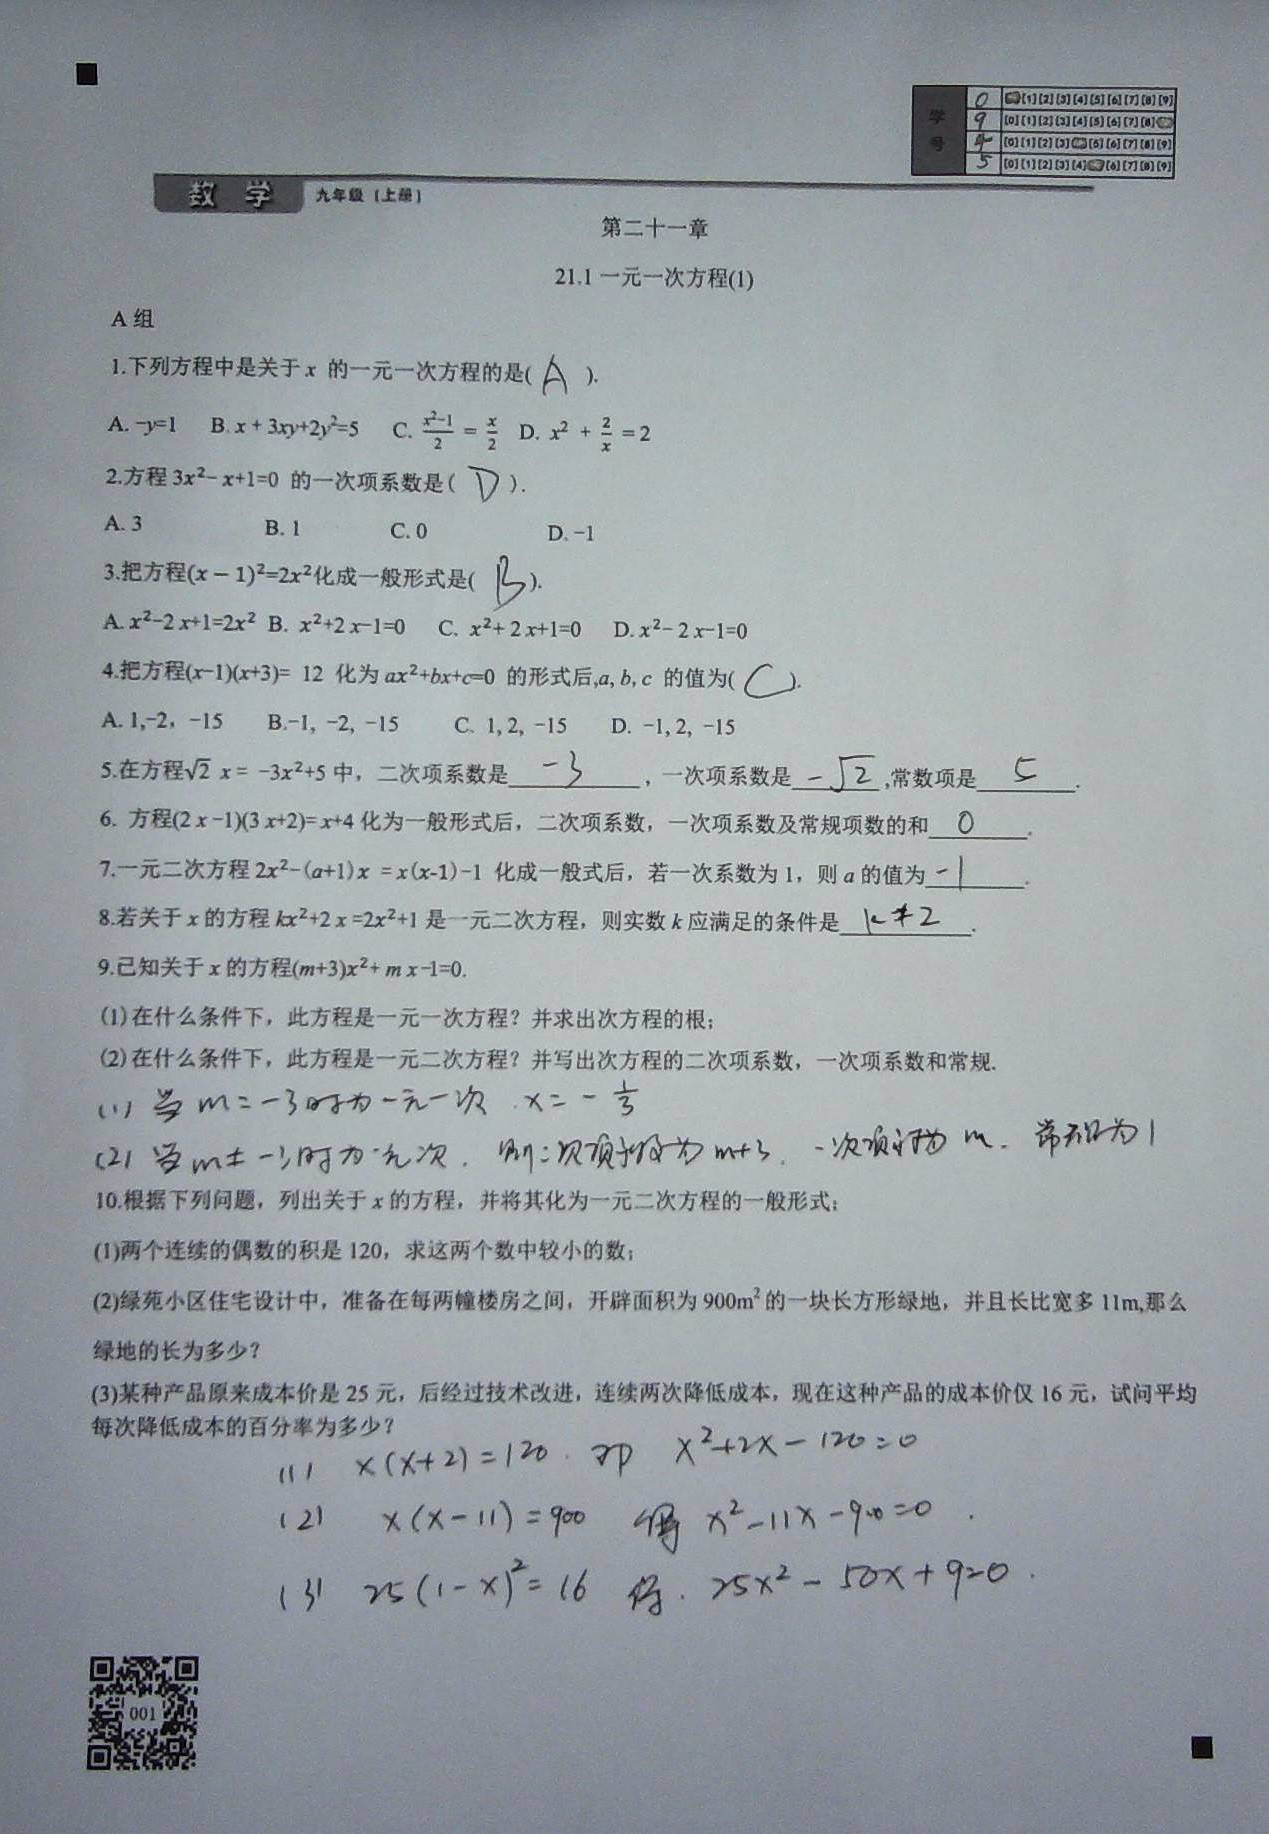 学号
0 [1] [2] [3] [4] [5] [6] [7] [8] [9]
9 [0] [1] [2] [3] [4] [5] [6] [7] [8]
4 [0] [1] [2] [3] [5] [6] [7] [8] [9]
5 [0] [1] [2] [3] [4] [6] [7] [8] [9]
数 学 九年级 (上册)
第二十一章
21.1 一元一次方程(1)
A 组
1.下列方程中是关于 x 的一元一次方程的是( A ).
A. -y=1 B. x + 3xy+2y²=5 C. (x²-1)/2 = x/2 D. x² + 2/x = 2
2.方程 3x²- x+1=0 的一次项系数是( D ).
A. 3 B. 1 C. 0 D. -1
3.把方程(x－1)²=2x²化成一般形式是( B ).
A. x²-2 x+1=2x² B. x²+2 x-1=0 C. x²+ 2 x+1=0 D. x²- 2 x-1=0
4.把方程(x-1)(x+3)= 12 化为 ax²+bx+c=0 的形式后,a, b, c 的值为( C ).
A. 1,-2，-15 B.-1, -2, -15 C、1, 2, -15 D. -1, 2, -15
5.在方程√2 x = -3x²+5 中，二次项系数是 -3 ，一次项系数是 -√2 ,常数项是 5 .
6. 方程(2 x -1)(3 x+2)= x+4 化为一般形式后，二次项系数，一次项系数及常规项数的和 0 .
7.一元二次方程 2x²-(a+1) x = x (x-1) -1 化成一般式后，若一次系数为 1，则 a 的值为 -1 .
8.若关于 x 的方程 kx²+2 x =2x²+1 是一元二次方程，则实数 k 应满足的条件是 k≠2 .
9.已知关于 x 的方程(m+3)x²+ m x-1=0.
(1)在什么条件下，此方程是一元一次方程？并求出次方程的根；
(2)在什么条件下，此方程是一元二次方程？并写出次方程的二次项系数，一次项系数和常规.
(1) 当 m=-3时为一元一次 x=-1/3
(2) 当 m≠-3时为一元二次. 则二次项系数为 m+3. 一次项为 m. 常为1
10.根据下列问题，列出关于 x 的方程，并将其化为一元二次方程的一般形式；
(1)两个连续的偶数的积是 120，求这两个数中较小的数；
(2)绿苑小区住宅设计中，准备在每两幢楼房之间，开辟面积为 900m² 的一块长方形绿地，并且长比宽多 11m,那么
绿地的长为多少？
(3)某种产品原来成本价是 25 元，后经过技术改进，连续两次降低成本，现在这种产品的成本价仅 16 元，试问平均
每次降低成本的百分率为多少？
(1) x(x+2)=120. 即 x²+2x-120=0
(2) x(x-11)=900 得 x²-11x-900=0.
(3) 25(1-x)²=16 得. 25x²-50x+9=0.
001